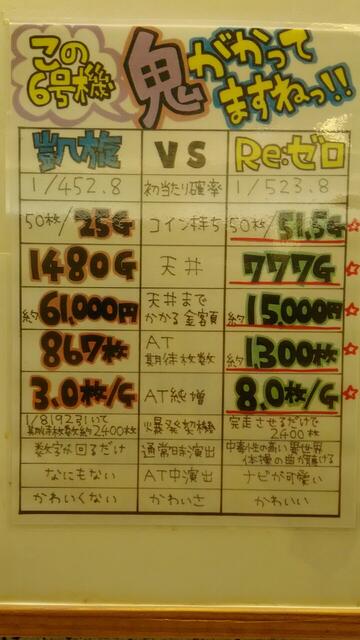 この
6号機
鬼がかって
ますねっ!!
凱旋 VS Re:ゼロ
1/452.8 初当たり確率 1/523.8
50枚/25G コイン持ち 50枚/51.5G
1480G 天井 777G
約61,000円 天井まで
かかる金額 約15,000円
867枚 AT
期待枚数 約1300枚
3.0枚/G AT純増 8.0枚/G
1/8192引いて
期待枚数約2400枚 爆発契機 完走させるだけで
2400枚
数字が回るだけ 通常時演出 中毒性の高い異世界
体操の曲が聴ける
なにもない AT中演出 ナビが可愛い
かわいくない かわいさ かわいい